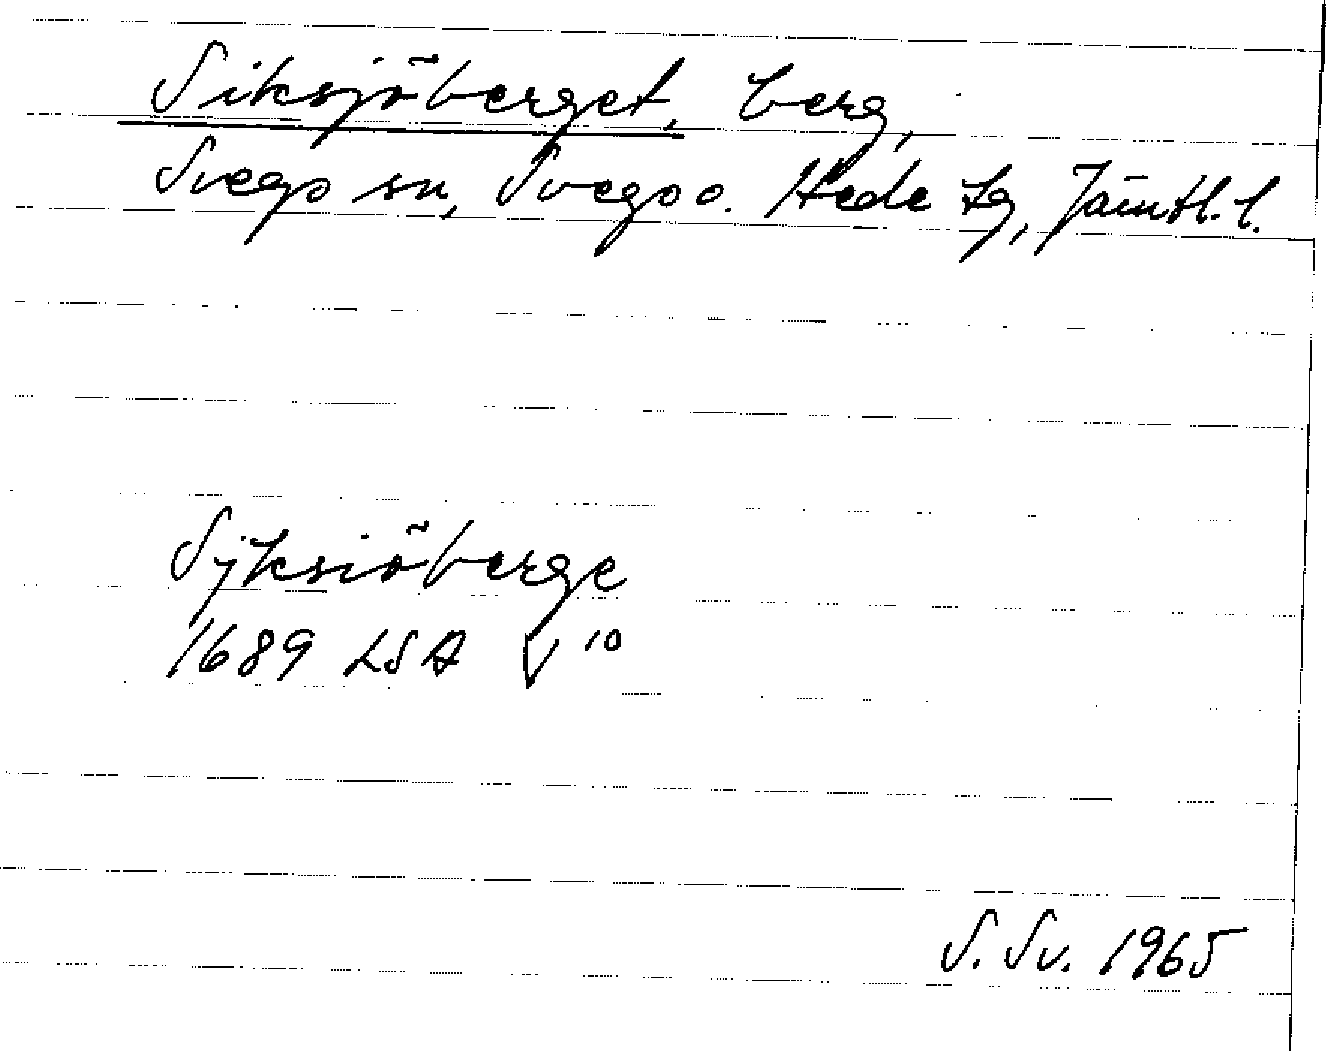 Siksjöberget, berg,
Svegs sn, Svegs o. Hede tg, Jämtl. l.
Sÿksiöberge
1689 LSA V 10
S. Sv. 1965